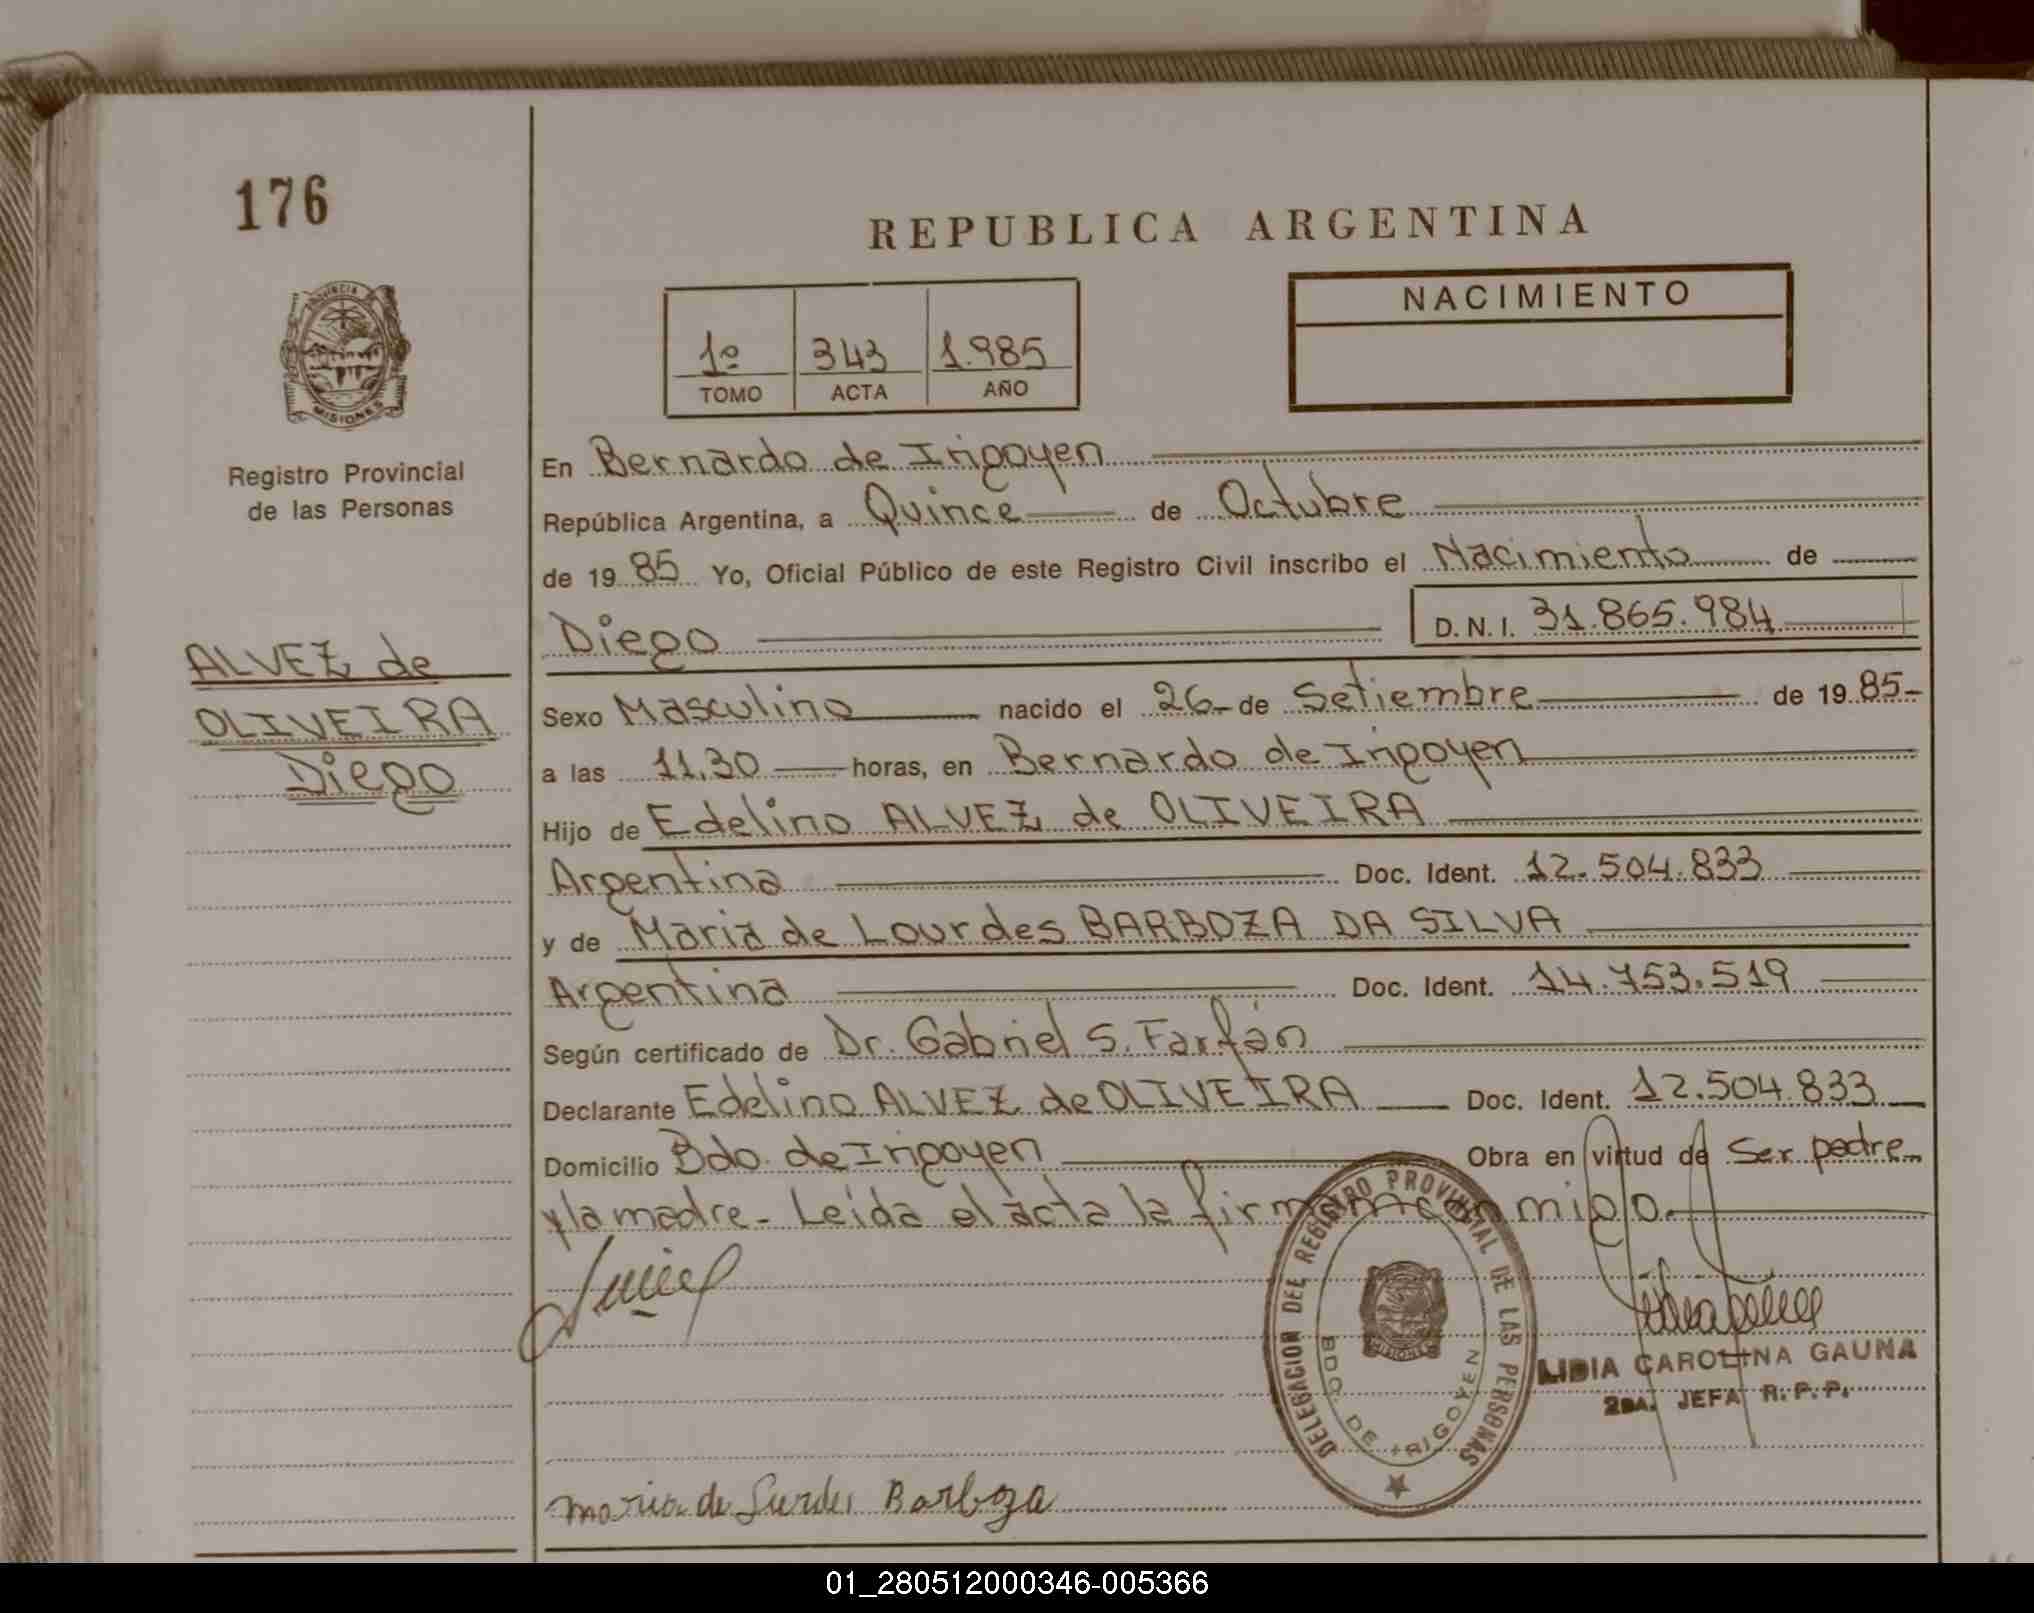 176
REPUBLICA ARGENTINA
NACIMIENTO
1º 343 1.985
TOMO ACTA AÑO
PROVINCIA
MISIONES
Registro Provincial
de las Personas
ALVEZ de
OLIVEIRA
Diego
En Bernardo de Irigoyen
República Argentina, a Quince de Octubre
de 19 85 Yo, Oficial Público de este Registro Civil inscribo el Nacimiento de
Diego D.N.I. 31.865.984
Sexo Masculino nacido el 26 de Setiembre de 19 85-
a las 11.30 horas, en Bernardo de Irigoyen
Hijo de Edelino ALVEZ de OLIVEIRA
Argentina Doc. Ident. 12.504.833
y de Maria de Lourdes BARBOZA DA SILVA
Argentina Doc. Ident. 14.753.519
Según certificado de Dr. Gabriel S. Farfán
Declarante Edelino ALVEZ de OLIVEIRA Doc. Ident. 12.504.833
Domicilio Bdo. de Irigoyen Obra en virtud de Ser padre
y la madre- Leída el acta la firman conmigo.
DELEGACION DEL REGISTRO PROVINCIAL DE LAS PERSONAS
BDO. DE IRIGOYEN
MISIONES
LIDIA CAROLINA GAUNA
2DA. JEFA R.P.P.
Maria de Lurdes Barboza
01_280512000346-005366